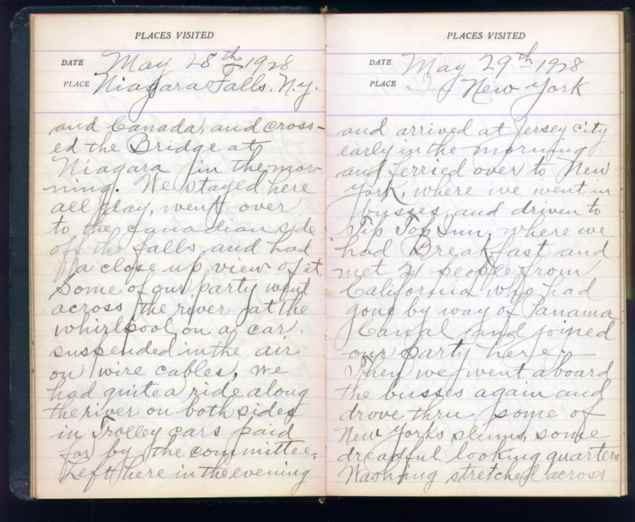 PLACES VISITED
DATE May 28th 1928
PLACE Niagara Falls. N.Y.
and Canada, and cross-
ed the Bridge at
Niagara in the mor-
ning. We stayed here
all day, went over
to the Canadian side
off the falls and had
a close up view of it
some of our party went
across the river at the
whirlpool on a car
suspended in the air
on wire cables, we
had quite a ride along
the river on both sides
in Trolley cars paid
for by the committee,
Left here in the evening
PLACES VISITED
DATE May 29th 1928
PLACE New York
and arrived at Jersey city
early in the morning
and ferried over to New
York, where we went in
busses, and driven to
Tip Top Inn, where we
had Breakfast and
met 21 people from
California who had
gone by way of Panama
Canal and joined
our party here.
Then we went aboard
the busses again and
drove thru some of
New Yorks slums, some
dreadful looking quarters
Washing stretched across